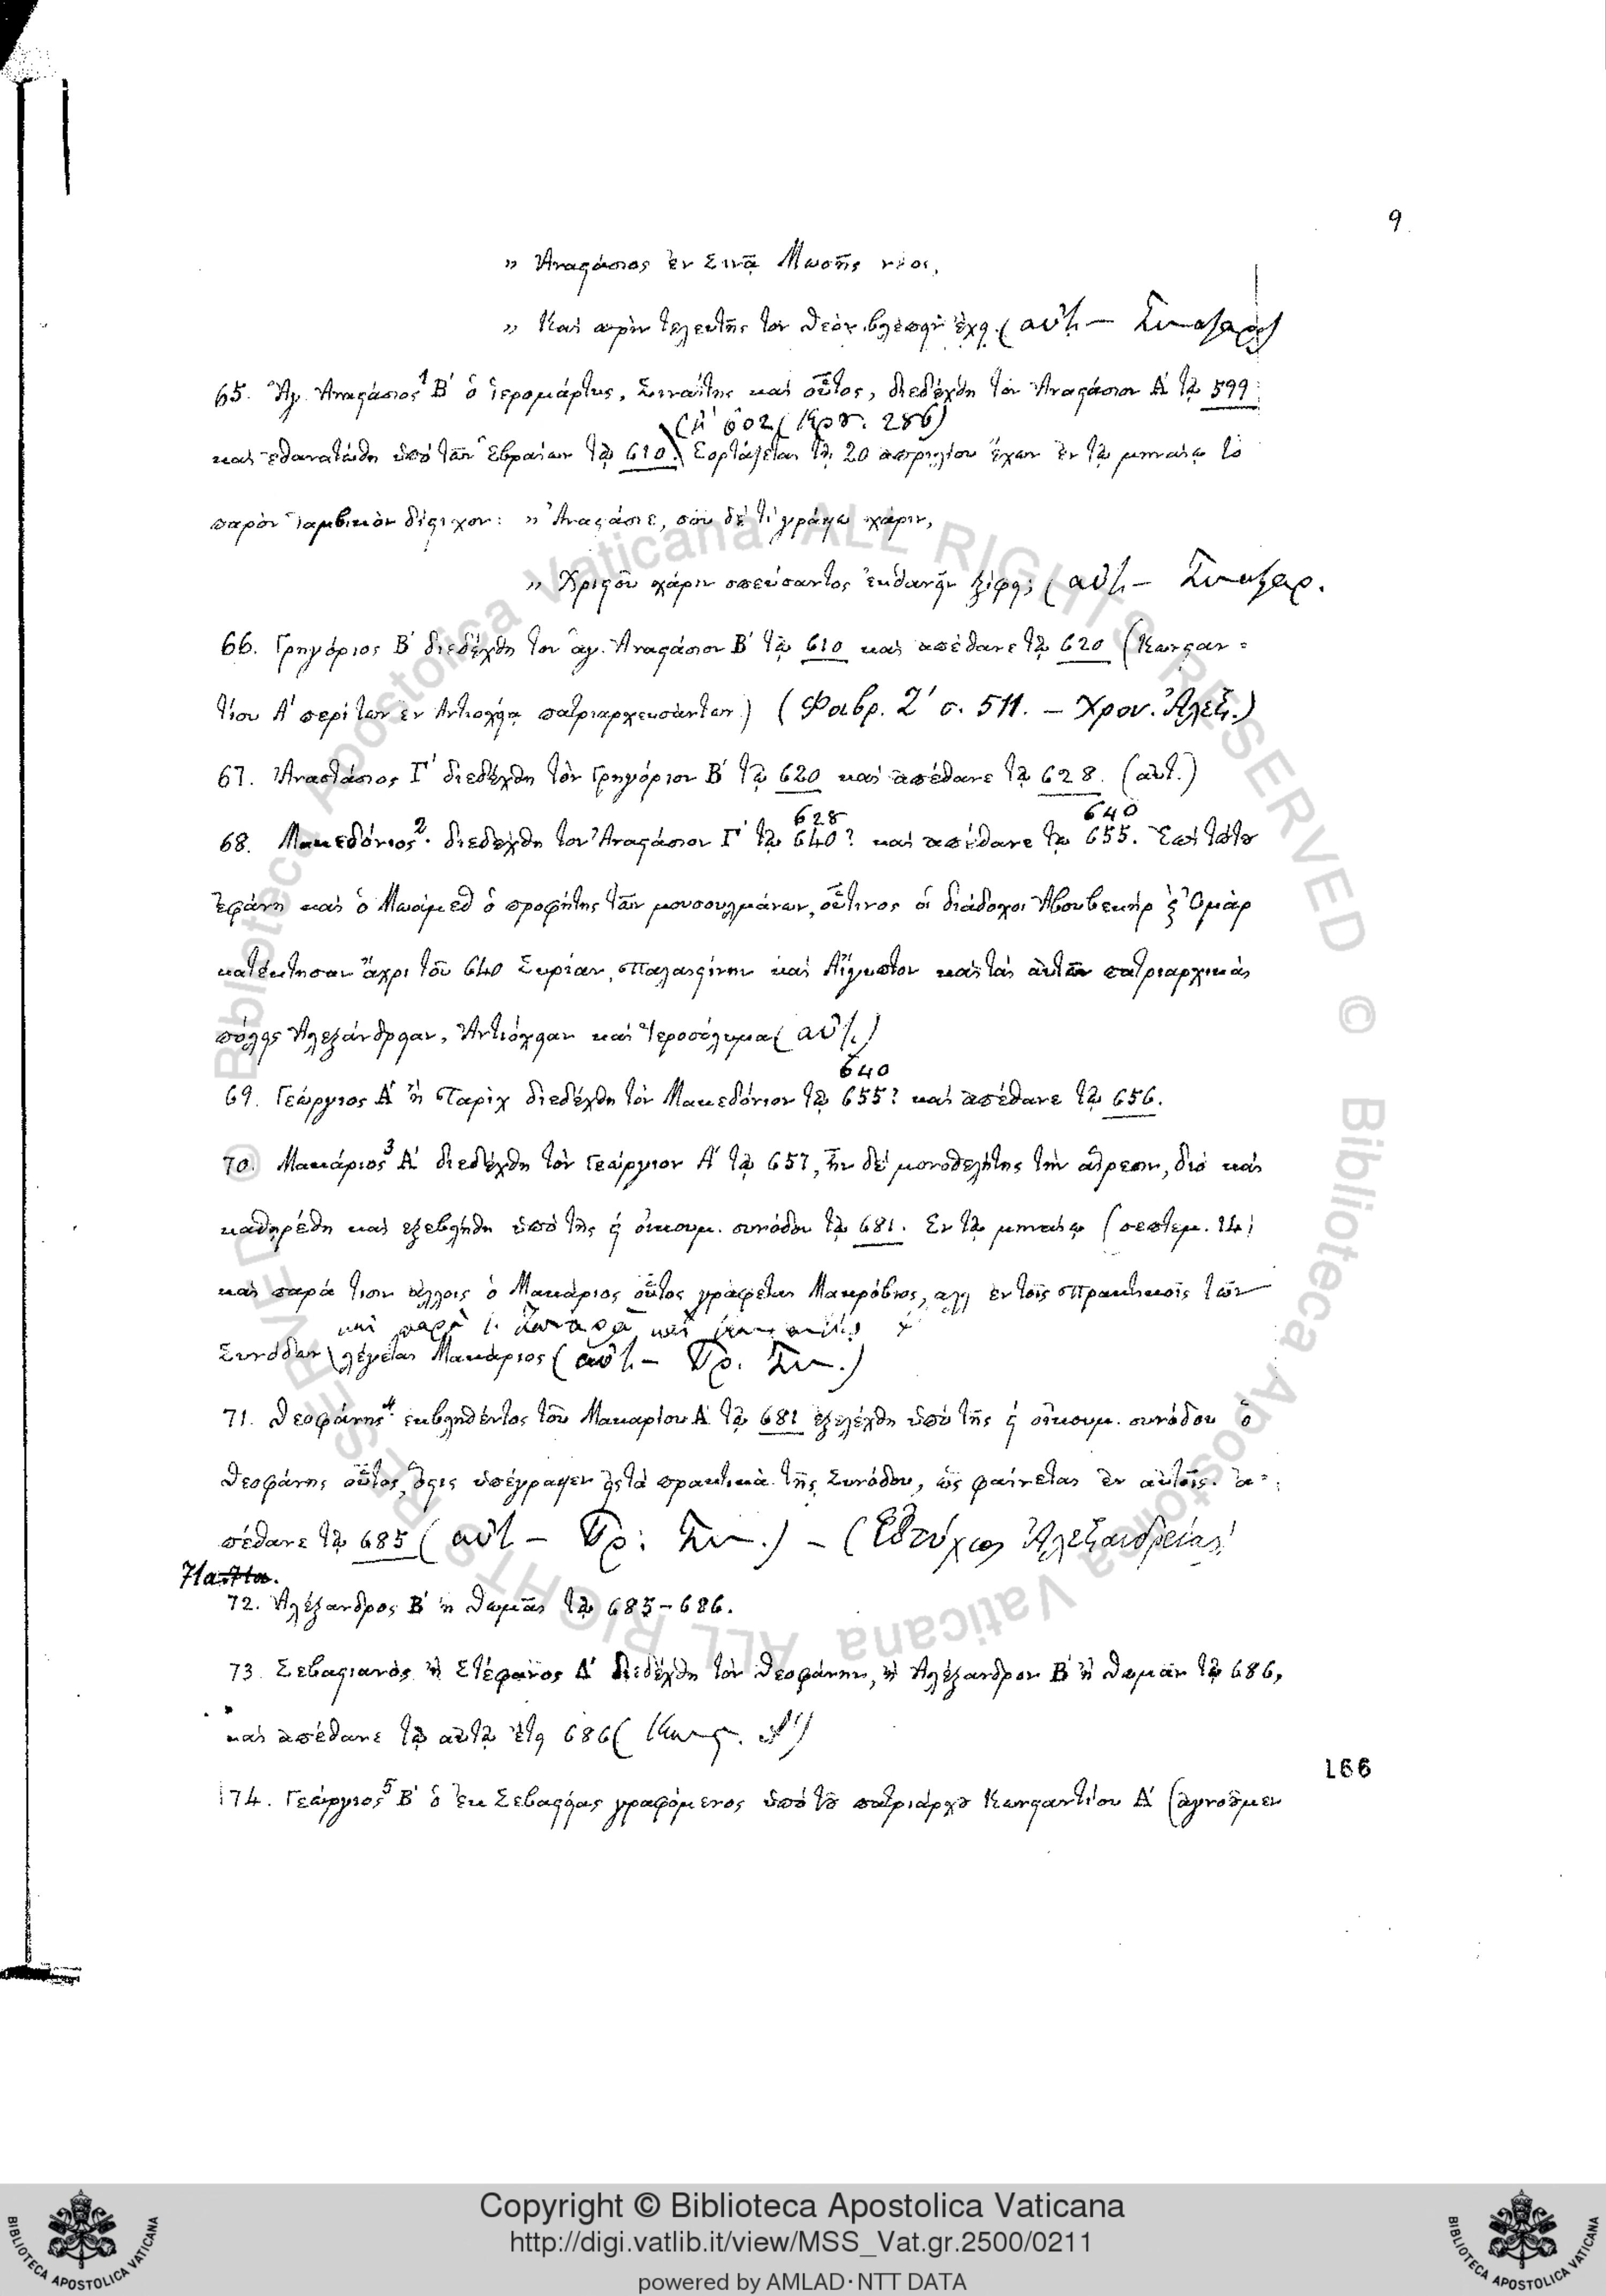 9
» Ἀναστάσιος ἐν Σινᾷ Μωσῆς νέος,
» Καὶ πρὶν τελευτῆς τὸν Θεὸν βλέπειν ἔχει. (αὐτ. — Συναξαρ.)
65. Ἅγ. Ἀναστάσιος¹ Β′ ὁ ἱερομάρτυς, Σιναΐτης καὶ οὗτος, διεδέχθη τὸν Ἀναστάσιον Α′ τῷ 599
(ἢ 602 ( 286)
καὶ ἐθανατώθη ὑπὸ τῶν Ἑβραίων τῷ 610. Ἑορτάζεται τῇ 20 ἀπριλίου ἔχων ἐν τῷ μηναίῳ τὸ
παρὸν ἰαμβικὸν δίστιχον: » Ἀναστάσιε, σοῦ δὲ τί γράψω χάριν,
» Χριστοῦ χάριν σπεύσαντος ἐκθανεῖν ξίφει; (αὐτ. — Συναξαρ.
66. Γρηγόριος Β′ διεδέχθη τὸν ἅγ. Ἀναστάσιον Β′ τῷ 610 καὶ ἀπέθανε τῷ 620 (Κωνσταν=
τίου Α′ περὶ τῶν ἐν Ἀντιοχείᾳ πατριαρχευσάντων) (Φαβρ. Ζ′ σ. 511. — Χρον. Ἀλεξ.)
67. Ἀναστάσιος Γ′ διεδέχθη τὸν Γρηγόριον Β′ τῷ 620 καὶ ἀπέθανε τῷ 628. (αὐτ.)
628 640
68. Μακεδόνιος². διεδέχθη τὸν Ἀναστάσιον Γ′ τῷ 640? καὶ ἀπέθανε τῷ 655. Ἐπὶ τούτου
ἐφάνη καὶ ὁ Μωάμεθ ὁ προφήτης τῶν μουσουλμάνων, οὗτινος οἱ διάδοχοι Ἀβουβεκὴρ ϗ Ὀμὰρ
κατέκτησαν ἄχρι τοῦ 640 Συρίαν, Παλαιστίνην καὶ Αἴγυπτον καὶ τὰς αὐτῶν πατριαρχικὰς
πόλεις Ἀλεξάνδρειαν, Ἀντιόχειαν καὶ Ἱεροσόλυμα (αὐτ.)
640
69. Γεώργιος Α′ ἢ Παρὶχ διεδέχθη τὸν Μακεδόνιον τῷ 655? καὶ ἀπέθανε τῷ 656.
70. Μακάριος³ Α′ διεδέχθη τὸν Γεώργιον Α′ τῷ 657, ἦν δὲ μονοθελήτης τὴν αἵρεσιν, διὸ καὶ
καθῃρέθη καὶ ἐξεβλήθη ὑπὸ τῆς ϛ′ οἰκουμ. συνόδου τῷ 681. Ἐν τῷ μηναίῳ (σεπτεμ. 14)
καὶ παρά τισιν ἄλλοις ὁ Μακάριος οὗτος γράφεται Μακρόβιος, ἀλλ' ἐν τοῖς πρακτικοῖς τῶν
καὶ παρὰ Ἰ. Ζωναρᾷ καὶ
Συνόδων \ λέγεται Μακάριος (αὐτ. — Συν.)
71. Θεοφάνης⁴. ἐκβληθέντος τοῦ Μακαρίου Α′ τῷ 681 ἐξελέχθη ὑπὸ τῆς ϛ′ οἰκουμ. συνόδου ὁ
Θεοφάνης οὗτος, ὅστις ὑπέγραψεν εἰς τὰ πρακτικὰ τῆς Συνόδου, ὡς φαίνεται ἐν αὐτοῖς. ἀ=
πέθανε τῷ 685 (αὐτ — Συν.) — (Εὐτύχιος Ἀλεξανδρείας)
71α.
72. Ἀλέξανδρος Β′ ἢ Θωμᾶς τῷ 685–686.
73. Σεβαστιανὸς ἢ Στέφανος Δ′ διεδέχθη τὸν Θεοφάνην, ἢ Ἀλέξανδρον Β′ ἢ Θωμᾶν τῷ 686,
καὶ ἀπέθανε τῷ αὐτῷ ἔτει 686 (Κωνστ. Α′)
166
74. Γεώργιος⁵ Β′ ὁ ἐκ Σεβαστείας γραφόμενος ὑπὸ τοῦ πατριάρχου Κωνσταντίου Α′ (ἀγνοοῦμεν
Copyright © Biblioteca Apostolica Vaticana
http://digi.vatlib.it/view/MSS_Vat.gr.2500/0211
powered by AMLAD·NTT DATA